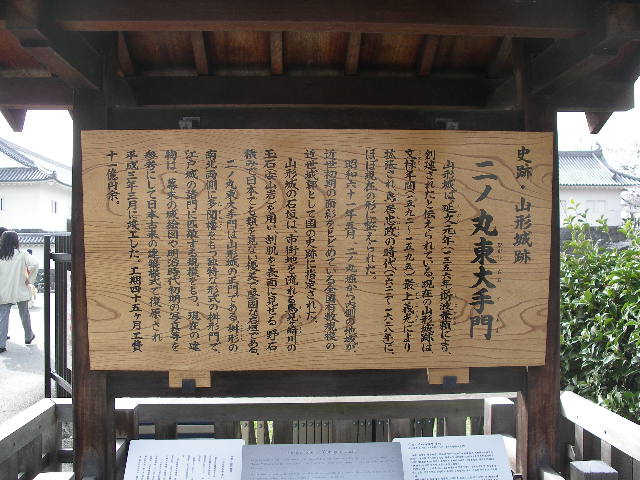 史跡・山形城跡
二ノ丸東大手門
山形城は正平元年(一三五六年)斯波兼頼により、
創建されたと伝えられている。現在の山形城跡は
文禄年間(一五九二〜一五九五)最上義光により
拡張され、鳥居忠政の時代(一六二二〜一六二八)に、
ほぼ現在の形に整えられた。
昭和六十一年五月、二ノ丸濠から内側の地域が、
近世初期の面影をとどめている全国有数規模の
近世城郭として国の史跡に指定された。
山形城の石垣は、市街地を流れる馬見ヶ崎川の
玉石(安山岩)を用い、割肌を表面に見せる、野石
積みで、日本でも類を見ない優美で堅固な石垣である。
二ノ丸東大手門は山形城の正門である。桝形の
南北両側に多聞櫓をもつ独特な形式の桝形門で、
江戸城の諸門に匹敵する規模をもつ。現在の建
物は、幕末の城絵図や明治時代初期の写真等を
参考にして日本古来の建築様式で復原され
平成三年三月に竣工した。工期四十五ヶ月、工費
十一億円余。